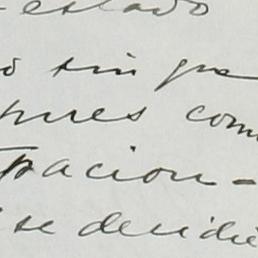 estado
ó sin gra
pues com
pacion-
se decidie